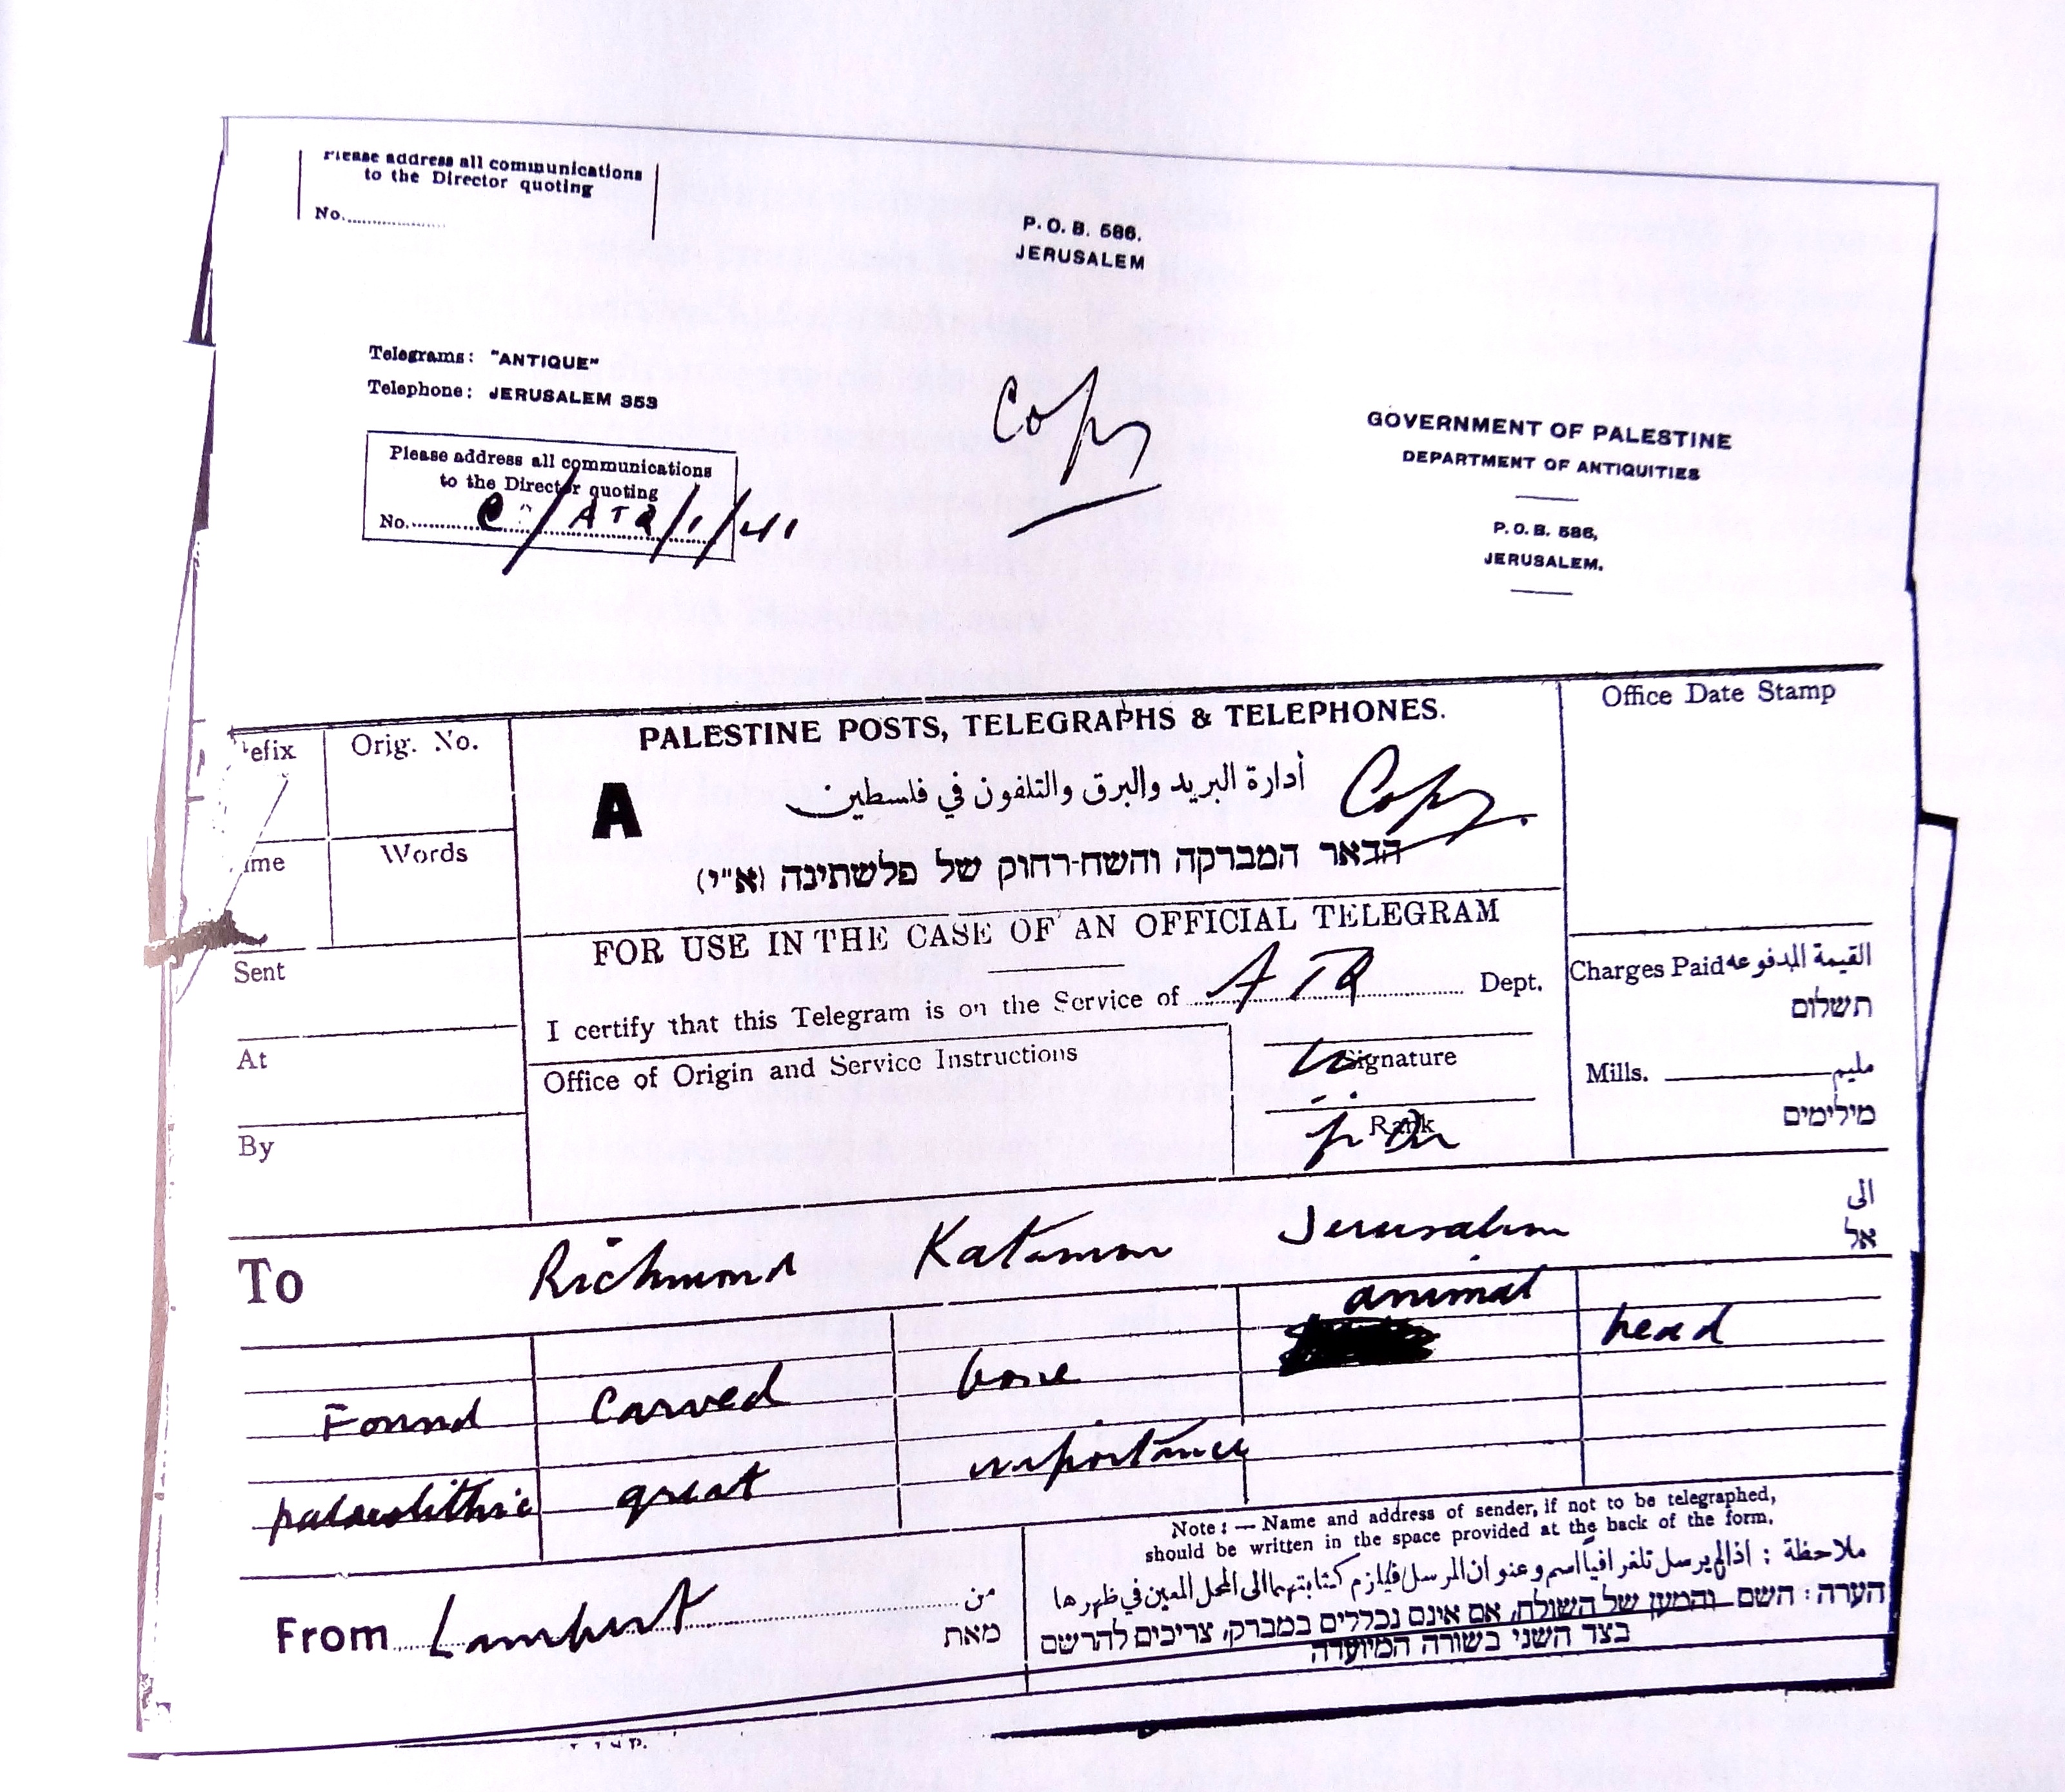 Please address all communications
to the Director quoting
No.
P. O. B. 586.
JERUSALEM
Telegrams: "ANTIQUE"
Telephone: JERUSALEM 353
Please address all communications
to the Director quoting
No. / ATQ/1/41
Copy
GOVERNMENT OF PALESTINE
DEPARTMENT OF ANTIQUITIES
P. O. B. 586,
JERUSALEM.
efix
Orig. No.
ime
Words
Sent
At
By
PALESTINE POSTS, TELEGRAPHS & TELEPHONES.
A
أدارة البريد والبرق والتلفون في فلسطين
Copy.
הדאר המברקה והשח-רחוק של פלשתינה (א"י)
FOR USE IN THE CASE OF AN OFFICIAL TELEGRAM
I certify that this Telegram is on the Service of ATQ Dept.
Office of Origin and Service Instructions
Signature
Rank
Office Date Stamp
Charges Paid القيمة المدفوعه
תשלום
Mills. مليم
מילימים
To Richmond Katamon Jerusalem
الى
אל
Found carved bone animal head
palaeolithic great importance
From Lambert
من
מאת
Note: — Name and address of sender, if not to be telegraphed,
should be written in the space provided at the back of the form.
ملاحظة : اذا لم يرسل تلغرافياً اسم وعنوان المرسل فيلزم كتابتهما الى المحل المعين في ظهرها
הערה: השם והמען של השולח, אם אינם נכללים במברק, צריכים להרשם
בצד השני בשורה המיועדה